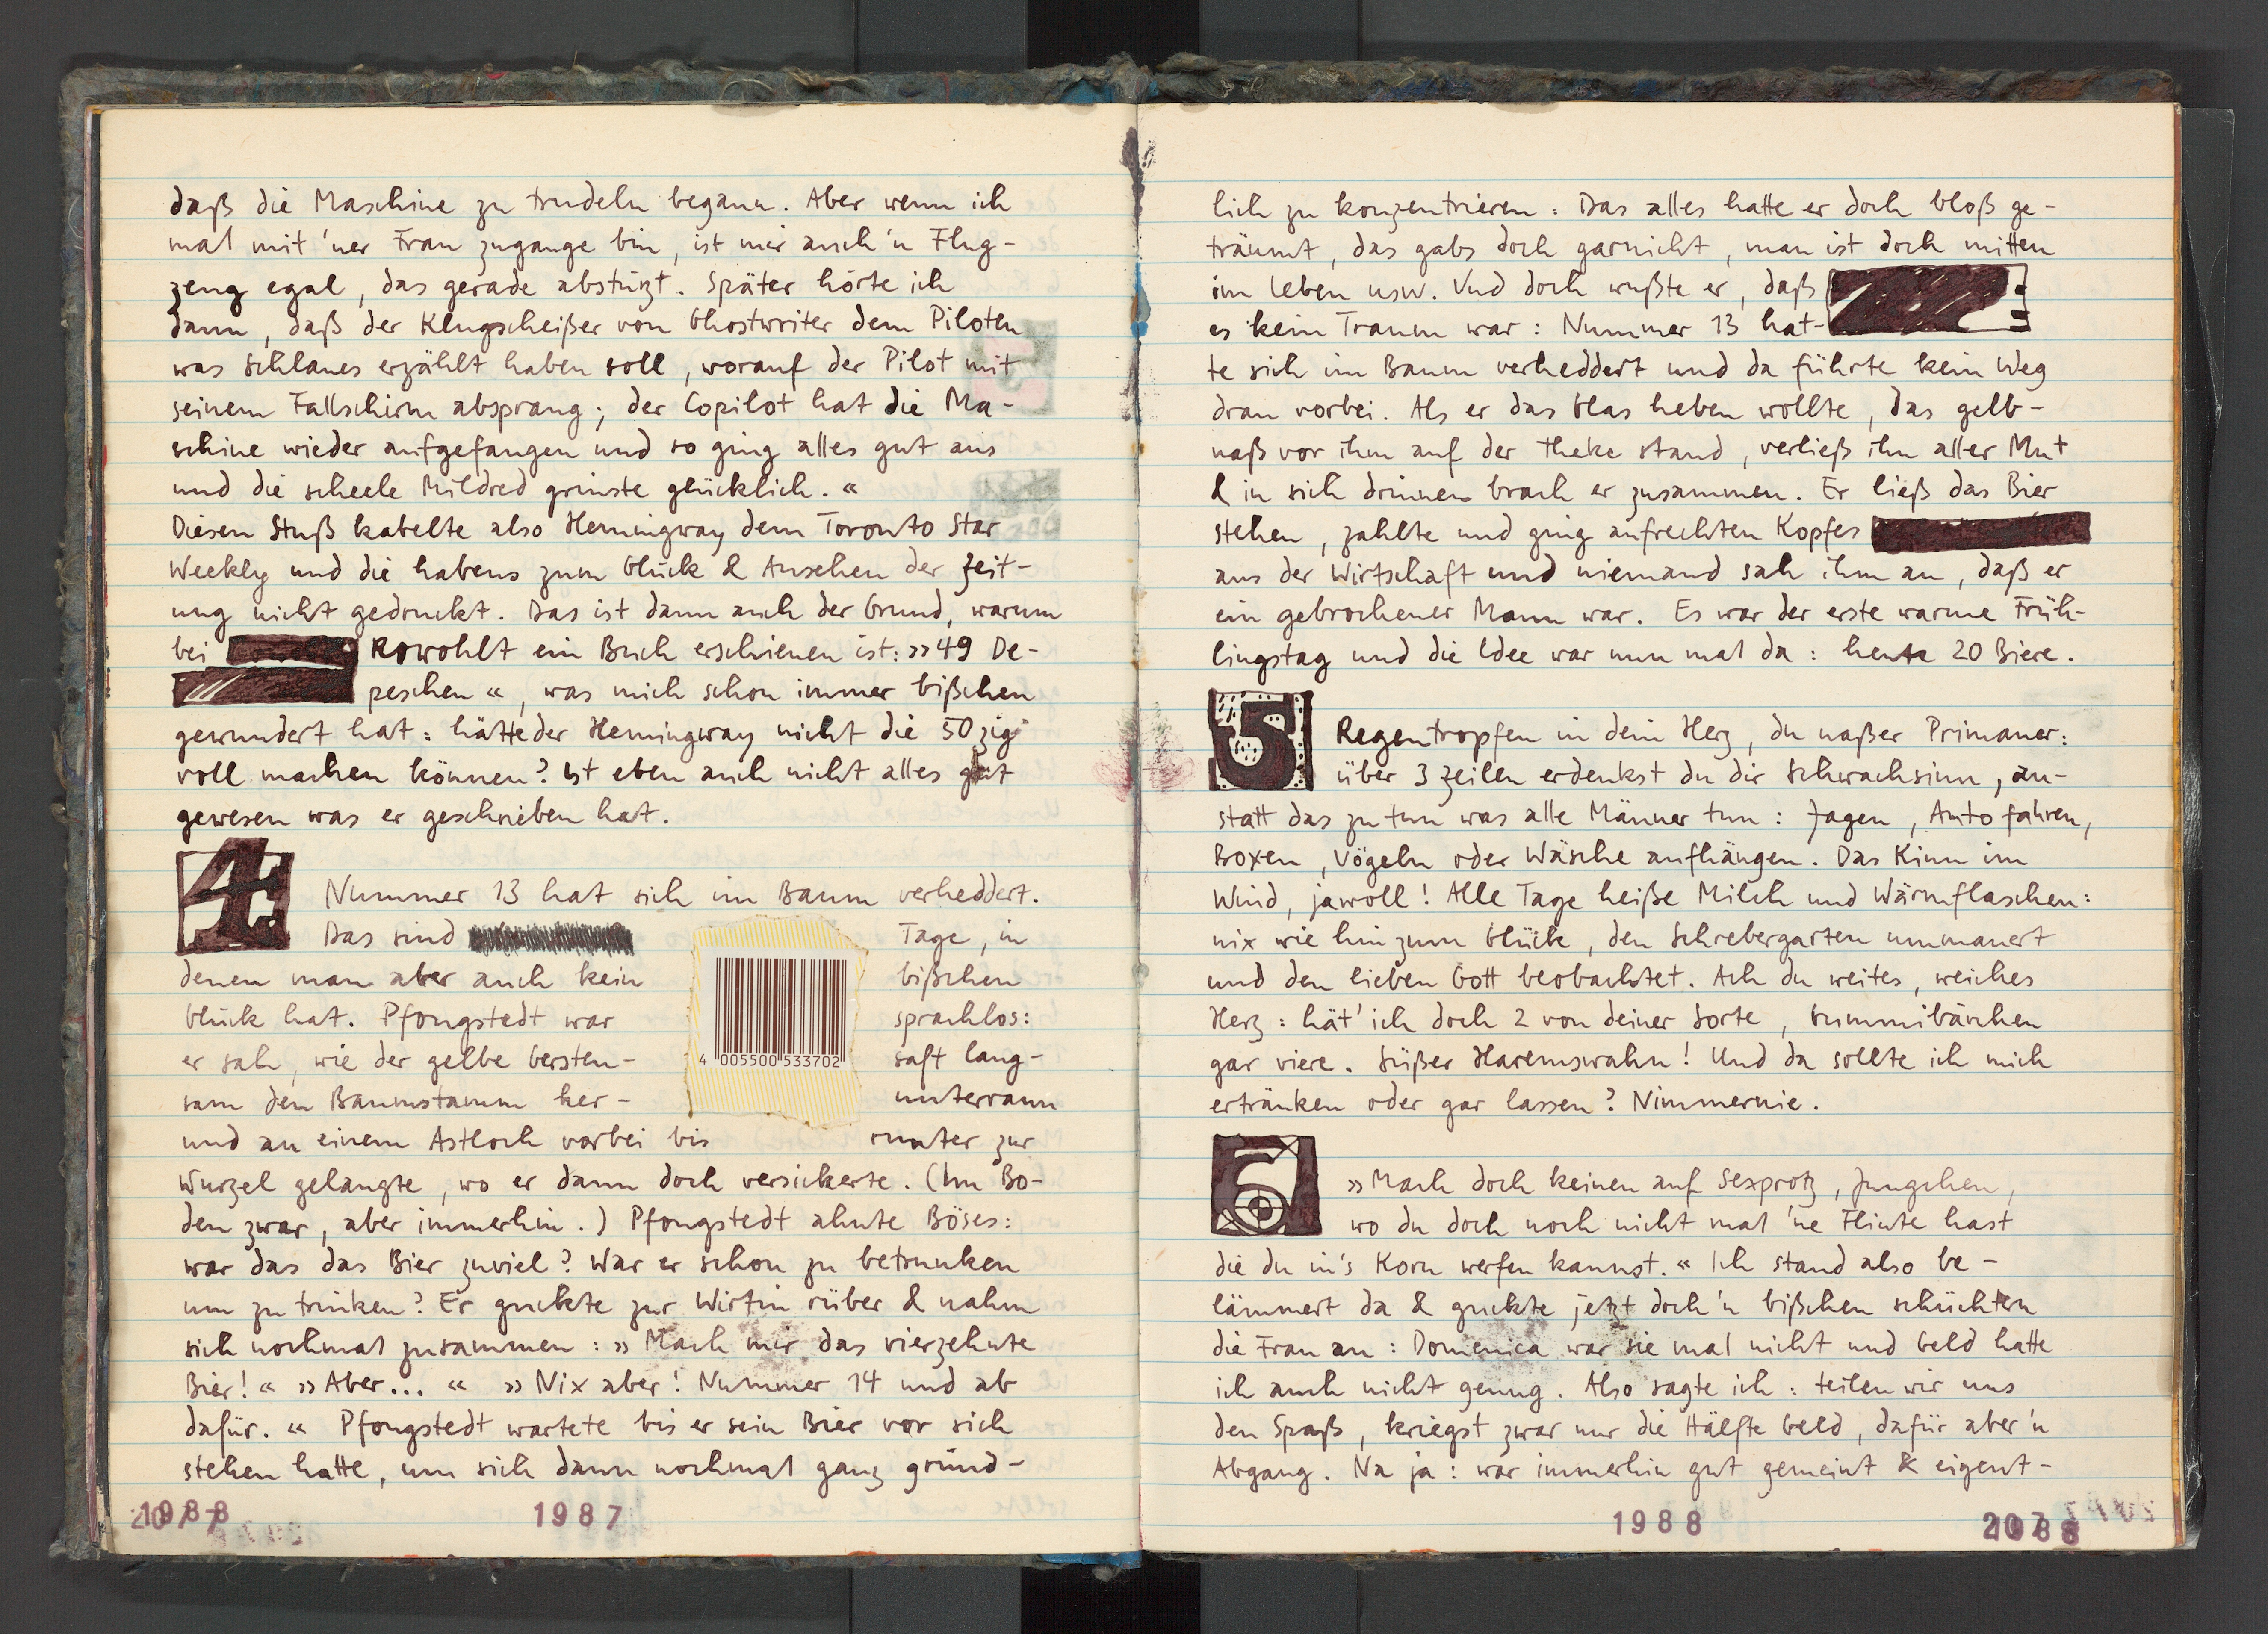 daß die Maschine zu trudeln begann. Aber wenn ich
mal mit 'ner Frau zugange bin, ist mir auch 'n Flug-
zeug egal, das gerade abstürzt. Später hörte ich
dann, daß der Klugscheißer von Ghostwriter dem Piloten
was schlaues erzählt haben soll, worauf der Pilot mit
seinem Fallschirm absprang; der Copilot hat die Ma-
schine wieder aufgefangen und so ging alles gut aus
und die scheele Mildred grinste glücklich.«
Diesen Stuß kabelte also Hemingway dem Toronto Star
Weekly und die habens zum Glück & Ansehen der Zeit-
ung nicht gedruckt. Das ist dann auch der Grund, warum
bei Rowohlt ein Buch erschienen ist: »49 De-
peschen«, was mich schon immer bißchen
gewundert hat: hätte der Hemingway nicht die 50zig
voll machen können? Ist eben auch nicht alles gut
gewesen was er geschrieben hat.
4. Nummer 13 hat sich im Baum verheddert.
Das sind Tage, in
denen man aber auch kein bißchen
Glück hat. Pfongstedt war sprachlos:
er sah, wie der gelbe Gersten- saft lang-
sam den Baumstamm her- unterrann
4 005500 533702
und an einem Astloch vorbei bis runter zur
Wurzel gelangte, wo er dann doch versickerte. (Im Bo-
den zwar, aber immerhin.) Pfongstedt ahnte Böses:
war das das Bier zuviel? War er schon zu betrunken
um zu trinken? Er guckte zur Wirtin rüber & nahm
sich nochmal zusammen: »Mach mir das vierzehnte
Bier!« »Aber...« »Nix aber! Nummer 14 und ab
dafür.« Pfongstedt wartete bis er sein Bier vor sich
stehen hatte, um sich dann nochmal ganz gründ-
1988
1987
lich zu konzentrieren: Das alles hatte er doch bloß ge-
träumt, das gabs doch garnicht, man ist doch mitten
im Leben usw. Und doch wußte er, daß
es kein Traum war: Nummer 13 hat-
te sich im Baum verheddert und da führte kein Weg
dran vorbei. Als er das Glas heben wollte, das gelb-
naß vor ihm auf der Theke stand, verließ ihn aller Mut
& in sich drinnen brach er zusammen. Er ließ das Bier
stehen, zahlte und ging aufrechten Kopfes
aus der Wirtschaft und niemand sah ihm an, daß er
ein gebrochener Mann war. Es war der erste warme Früh-
lingstag und die Idee war nun mal da: heute 20 Biere.
5 Regentropfen in dein Herz, du naßer Primaner:
über 3 Zeilen erdenkst du dir Schwachsinn, an-
statt das zu tun was alle Männer tun: Jagen, Auto fahren,
Boxen, Vögeln oder Wäsche aufhängen. Das Kinn im
Wind, jawoll! Alle Tage heiße Milch und Wärmflaschen:
nix wie hin zum Glück, den Schrebergarten ummauert
und den lieben Gott beobachtet. Ach du weites, weiches
Herz: hät' ich doch 2 von deiner Sorte, Gummibärchen
gar viere. Süßer Haremswahn! Und da sollte ich mich
ertränken oder gar lassen? Nimmernie.
6 »Mach doch keinen auf Sexprotz, Jungchen,
wo du doch noch nicht mal 'ne Flinte hast
die du in's Korn werfen kannst.« Ich stand also be-
lämmert da & guckte jetzt doch 'n bißchen schüchtern
die Frau an: Domenica war sie mal nicht und Geld hatte
ich auch nicht genug. Also sagte ich: teilen wir uns
den Spaß, kriegst zwar nur die Hälfte Geld, dafür aber 'n
Abgang. Na ja: war immerhin gut gemeint & eigent-
1988